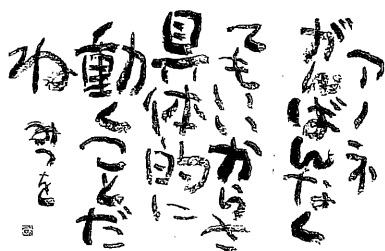 アノネ
がんばんなく
てもいいからさ
具体的に
動くことだ
ね
みつを